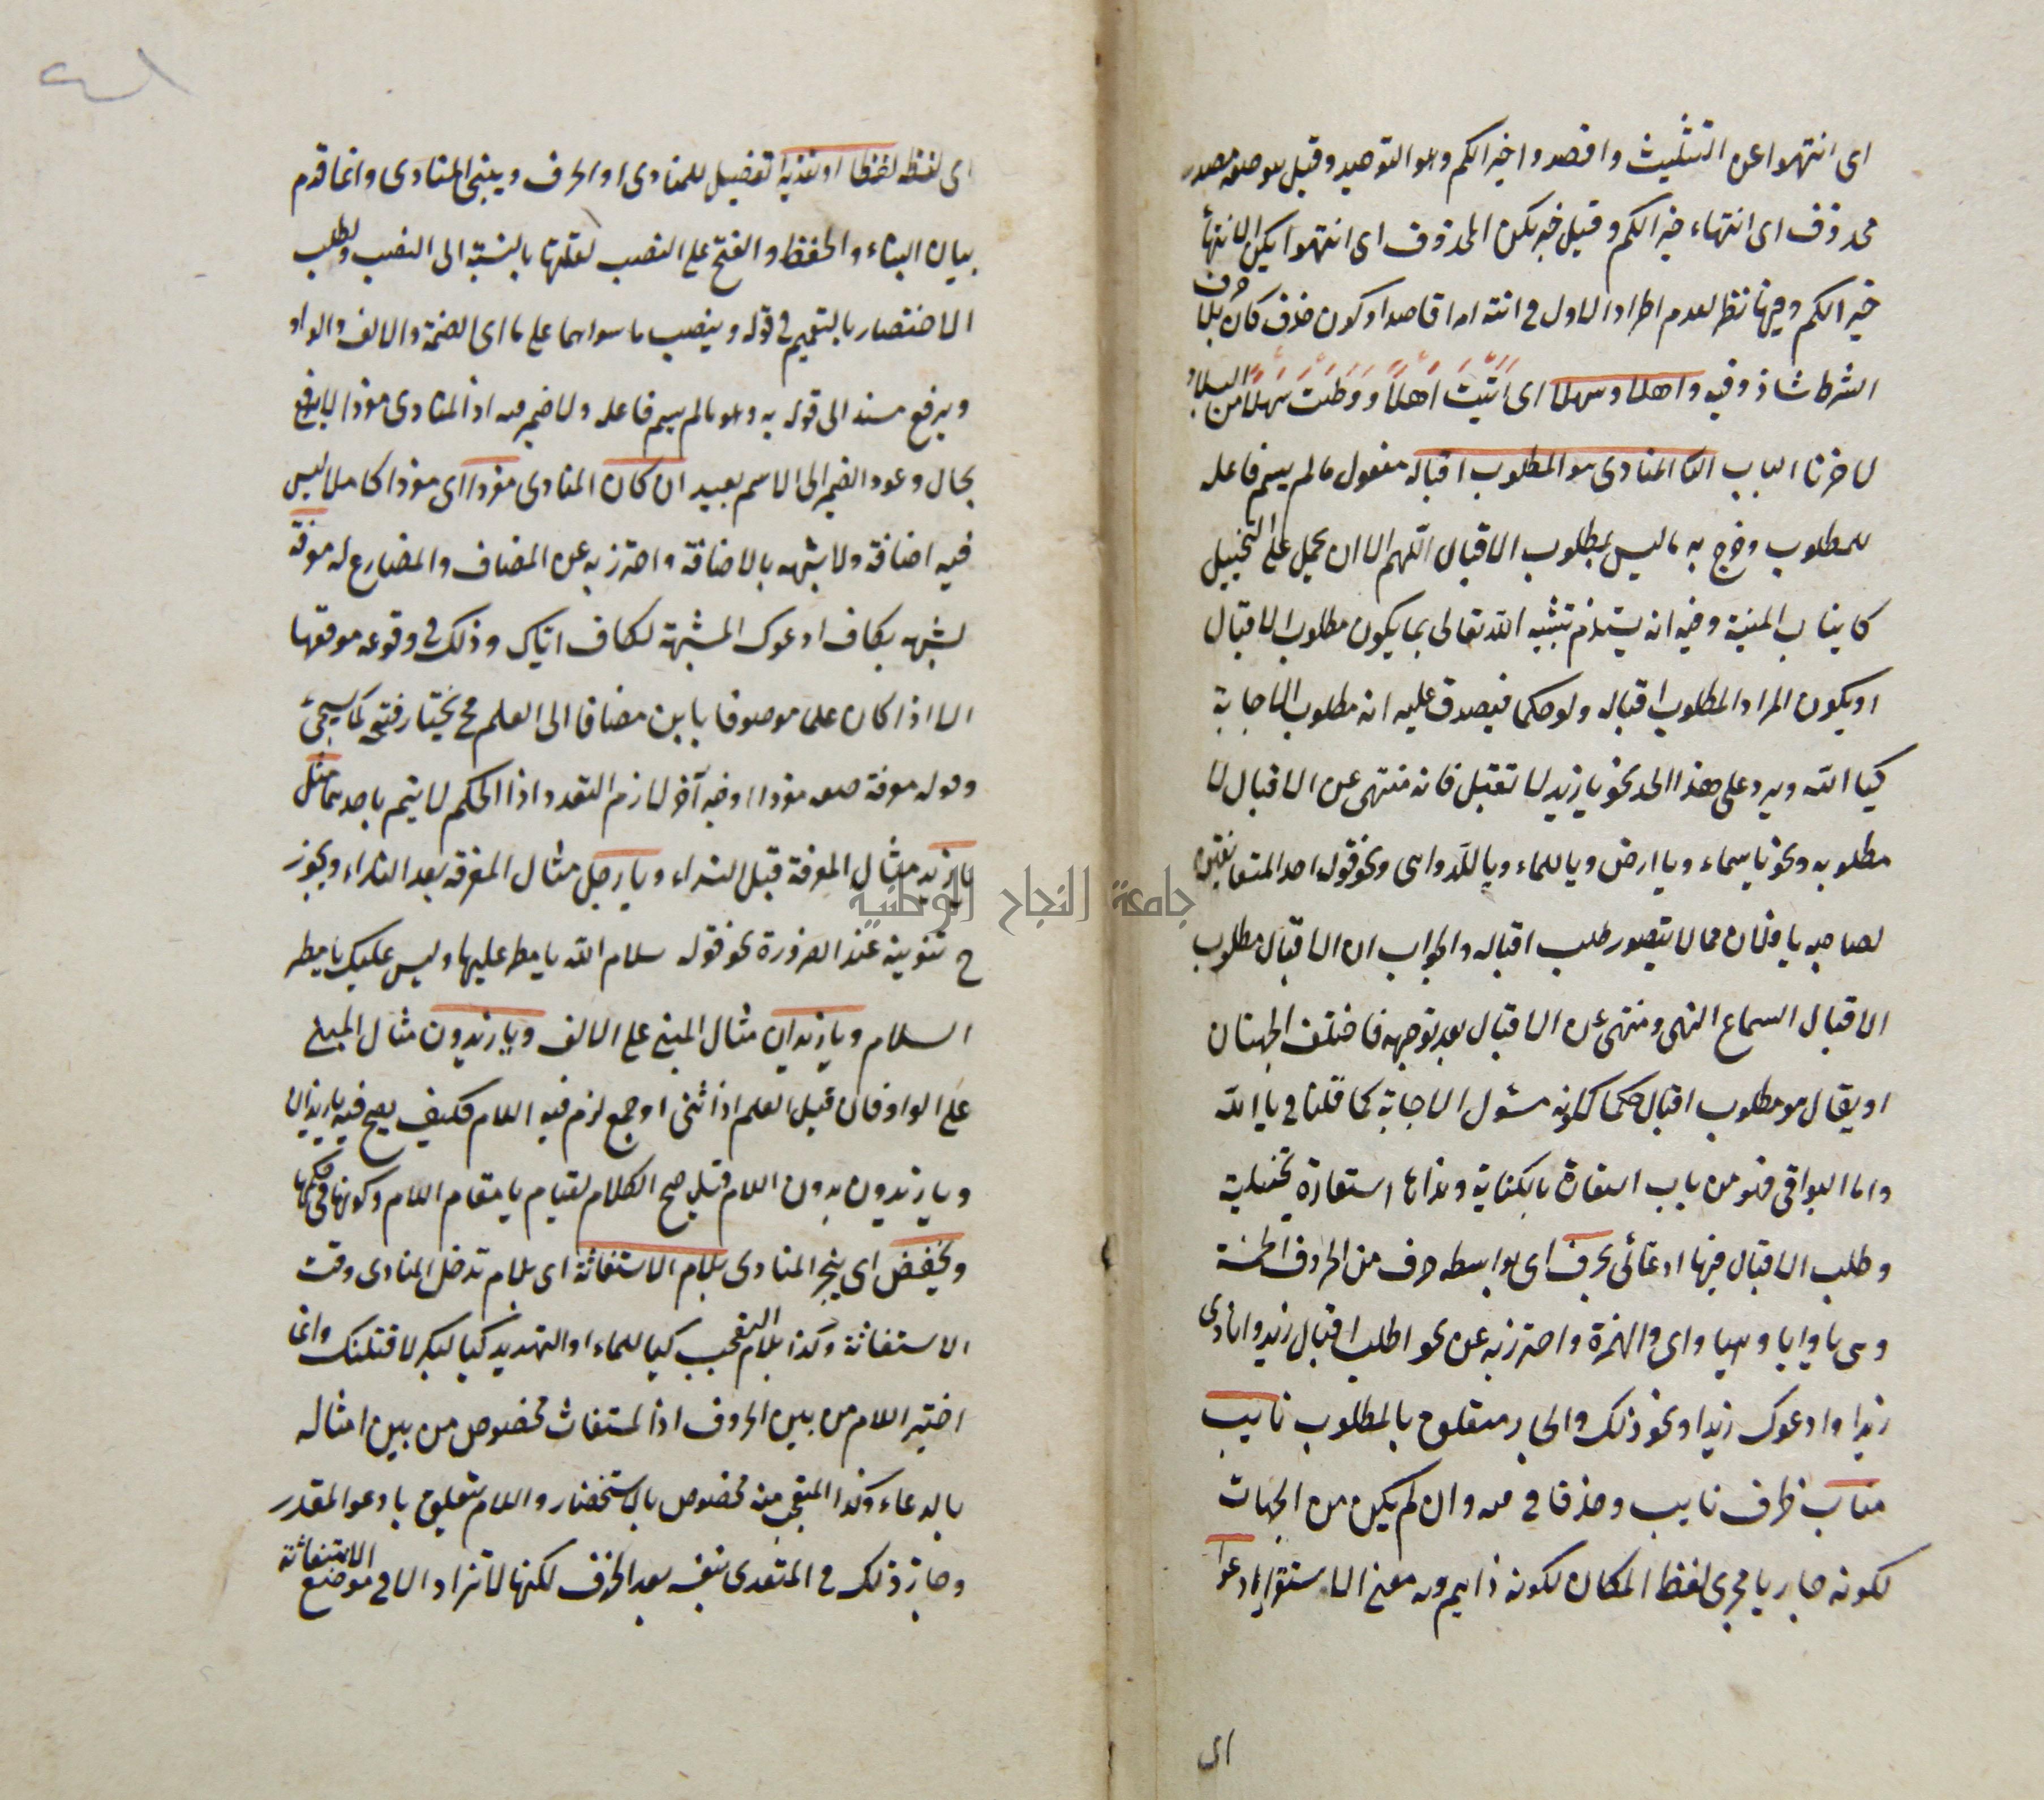 اى انتهوا عن التثليث واقصدوا خيرا لكم وهو التوحيد وقيل هو صفة مصدر
محذوف اى انتهاء خيرا لكم وقيل خبر يكن المحذوف اى انتهوا يكن الانتهاء
خيرا لكم وفيها نظر لعدم اطراد الاول فى انته امرا قاصدا وكون حذف كان بلا حرف
الشرط شاذ وفيه واهلا وسهلا اى اتيت اهلا ووطئت سهلا من البلاد
لا حزنا الباب المنادى هو المطلوب اقباله مفعول مالم يسم فاعله
للمطلوب وخرج به ما ليس بمطلوب الاقبال اللهم الا ان يحمل على التخييل
كانياب المنية وفيه انه يستلزم تشبيه الله تعالى بما يكون مطلوب الاقبال
او يكون المراد المطلوب اقباله ولو حكما فيصدق عليه انه مطلوب الاجابة
كيا الله ويرد على هذا الحد نحو يا زيد لا تقبل فانه منتهى عن الاقبال لا
مطلوبه ونحو يا سماء ويا ارض ويا للماء ويا للدواهى ونحو قول احد المتعانقين
لصاحبه يا فلان مما لا يتصور طلب اقباله والجواب ان الاقبال مطلوب
الاقبال السماع النهى ومنتهى عن الاقبال بعد توجهه فاختلف الجهتان
او يقال هو مطلوب اقبال حكما لكونه مسئول الاجابة كما قلنا فى يا الله
واما البواقى فهو من باب استعارة بالكناية ونداؤها استعارة تخييلية
وطلب الاقبال فيها ادعائى بحرف اى بواسطه حرف من الحروف الخمسة
وهى يا وايا وهيا واى والهمزة واحترز به عن نحو اطلب اقبال زيد وانادى
زيدا وادعوك زيدا ونحو ذلك والجار متعلق بالمطلوب نايب
مناب ظرف نايب وحذف فى منه وان لم يكن من الجهات
لكونه جاريا مجرى لفظ المكان لكونه ذا ميم وله معنى الاستقرار ادعوا
اى
اى لفظه لفظا او تقديرا تفصيل للمنادى او الحرف ويبنى المنادى وانما قدم
بيان البناء والخفض والفتح على النصب لقلتها بالنسبة الى النصب ولطلب
الاختصار بالتعميم فى قوله وينصب ما سواهما على ما اى الضمة والالف والواو
ويرفع مسند الى قوله به وهو مالم يسم فاعله ولا ضمير فيه اذ المنادى مفردا لا يرفع
بحال وعود الضمير الى الاسم بعيد ان كان المنادى مفردا اى مفردا كاملا ليس
فيه اضافة ولا شبهه بالاضافة واحترز به عن المضاف والمضارع له معرفة
لشبهه بكاف ادعوك المشبهة لكاف اياك وذلك فى وقوعه موقعها
الا اذا كان علما موصوفا بابن مضافا الى العلم فح يختار فتحه كما سيجئ
وقوله معرفة صفه مفردا او خبر آخر لازم التعدد اذا الحكم لا يتم باحدهما مثل
يا زيد مثال المعرفة قبل النداء ويا رجل مثال المعرفة بعد النداء ويجوز
ح تنوينه عند الضرورة نحو قوله سلام الله يا مطر عليها وليس عليك يا مطر
السلام ويا زيدان مثال المبنى على الالف ويا زيدون مثال المبنى
على الواو فان قيل العلم اذا ثنى او جمع لزم فيه اللام فكيف يصح فيه يا زيدان
ويا زيدون بدون اللام قيل صح الكلام لقيام يا مقام اللام وكونها فى حكمها
ويخفض اى ينجر المنادى بلام الاستغاثة اى بلام تدخل المنادى وقت
الاستغاثة وكذا بلام التعجب كيا للماء او التهديد كيا لبكر لاقتلنك وانما
اختير اللام من بين الحروف اذ المستغاث مخصوص من بين امثاله
بالدعاء وكذا المتعجب منه مخصوص بالاستحضار واللام متعلق بادعو المقدر
وجاز ذلك فى المتعدى بنفسه بعد الحذف لكنها لا تزاد الا فى موضع الاستغاثة
جامعة النجاح الوطنية